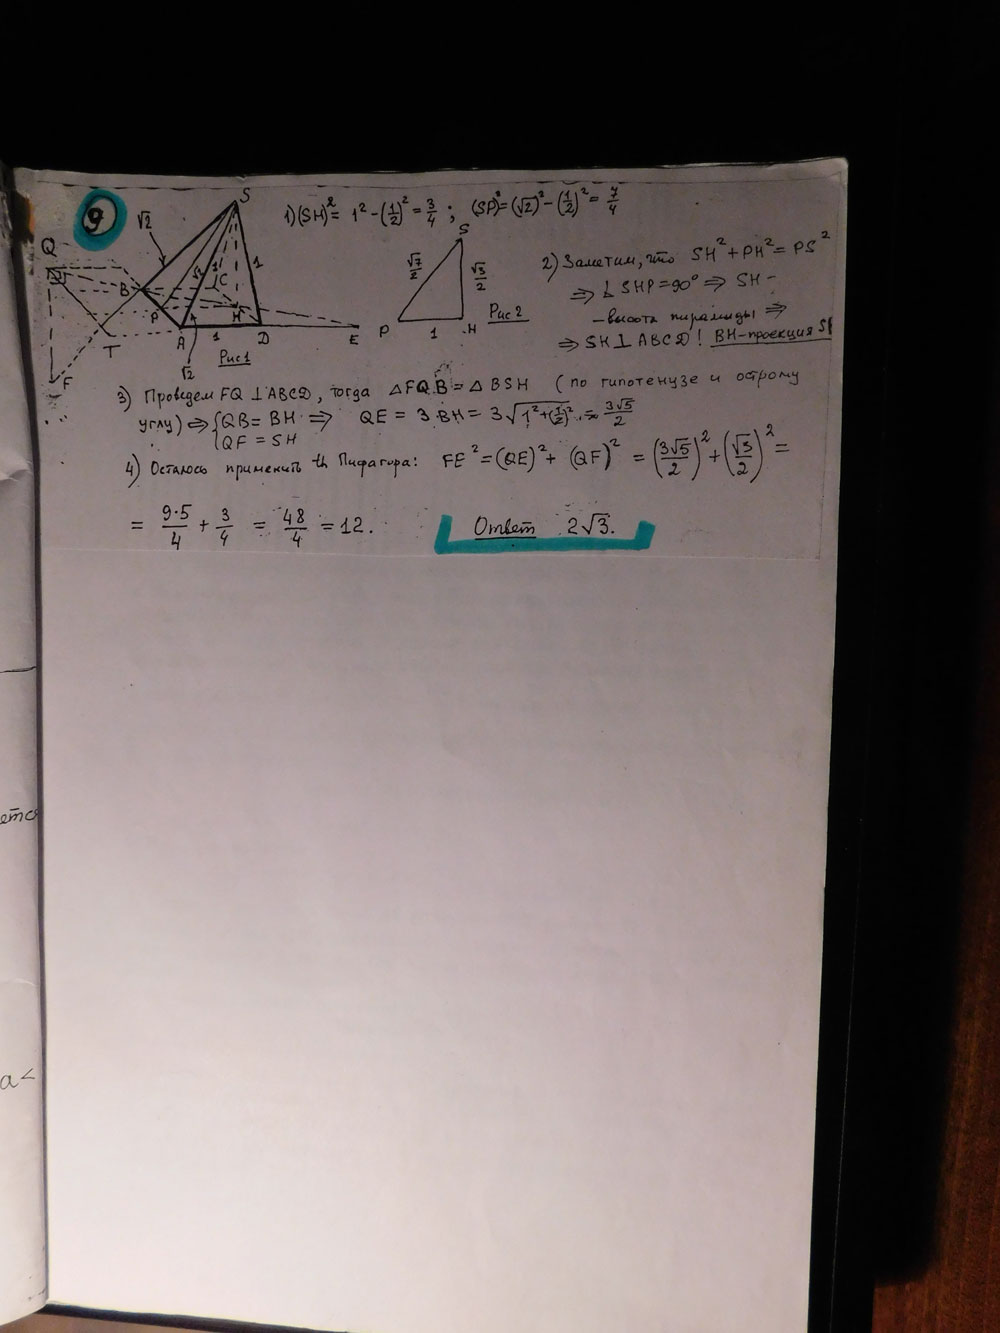 9
1) (SH)² = 1² - (1/2)² = 3/4 ; (SP)² = (√2)² - (1/2)² = 7/4
S
√2
1
1
C
Q
B
P
H
T
A
1
D
E
F
√2
Рис 1
S
√7/2
√3/2
P
1
H
Рис 2
2) Заметим, что SH² + PH² = PS²
⇒ ∠SHP = 90° ⇒ SH -
- высота пирамиды ⇒
⇒ SH ⊥ ABCD ! BH - проекция
3) Проведем FQ ⊥ ABCD, тогда △FQB = △BSH (по гипотенузе и острому
углу) ⇒ { QB = BH ⇒ QE = 3 BH = 3√(1² + (1/2)²) = 3√5/2
QF = SH
4) Осталось применить th Пифагора: FE² = (QE)² + (QF)² = (3√5/2)² + (√3/2)² =
= 9·5/4 + 3/4 = 48/4 = 12.
Ответ 2√3.
ется
a <